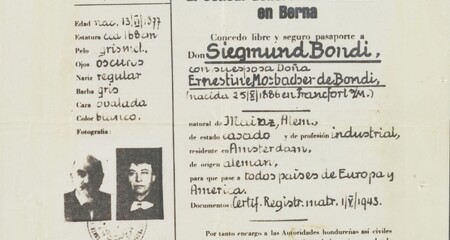 en Berna
Edad nac. 13/VI/1877
Estatura
Pelo
Ojos oscuros
Nariz regular
Barba gris
Cara ovalada
Color blanco.
Fotografía:
Concedo libre y seguro pasaporte a
Don Siegmund Bondi,
con su esposa Doña
Ernestine Mosbacher de Bondi,
(nacida 25/X/1886 en Francfort o/M.)
natural de Mainz, Alem.
de estado casado y de profesión industrial,
residente en Amsterdam,
de origen aleman,
para que pase a todos paises de Europa y
America.
Documentos: Certif. Registr. matr. 1/V/1943.
Por tanto encargo a las Autoridades hondureñas así civiles